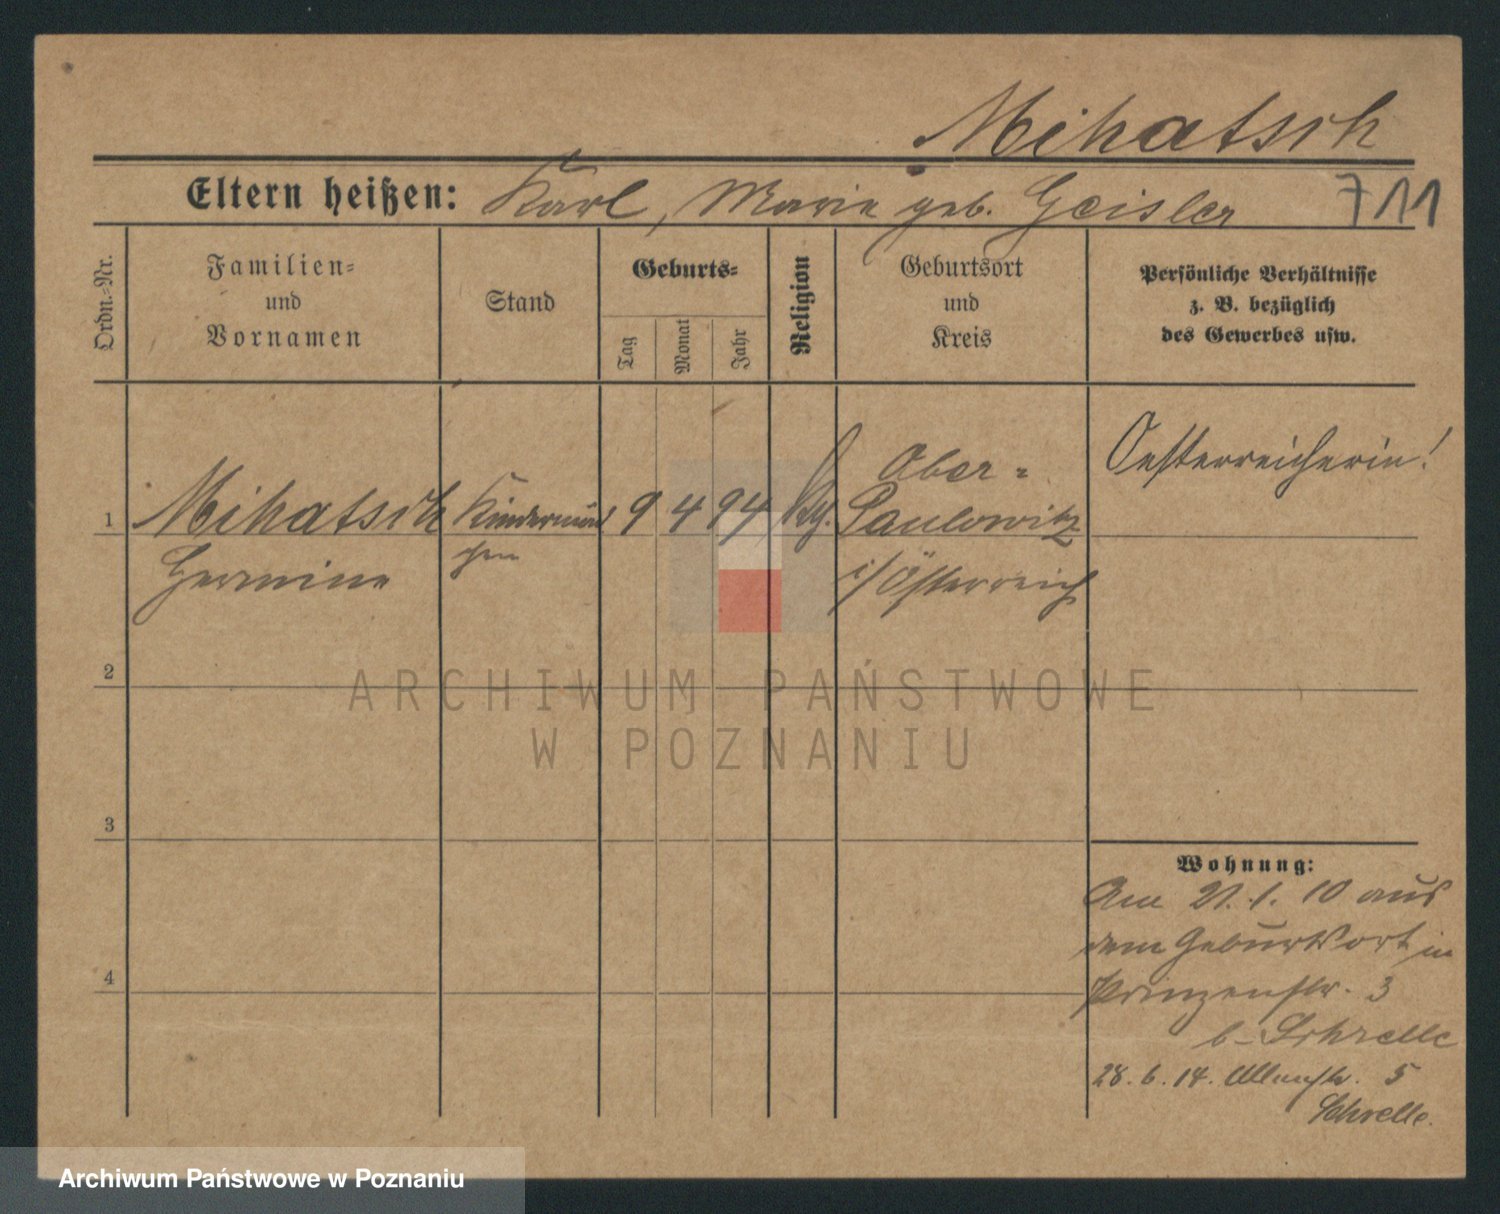 Mihatsch
Eltern heißen: Karl, Marie geb. Geisler 711
Ordn.-Nr.
Familien-
und
Vornamen
Stand
Geburts-
Tag
Monat
Jahr
Religion
Geburtsort
und
Kreis
Persönliche Verhältnisse
z. B. bezüglich
des Gewerbes usw.
1
Mihatsch
Hermine
Kindermäd
chen
9 4 94
Ober-
Paulowitz
i/Österreich
Oesterreicherin!
2
3
4
Wohnung:
Am 21.1.10 aus
dem Geburtsort in
Prinzenstr. 3
b. Schrelle
28.6.14. 5
Schrelle.
ARCHIWUM PAŃSTWOWE
W POZNANIU
Archiwum Państwowe w Poznaniu